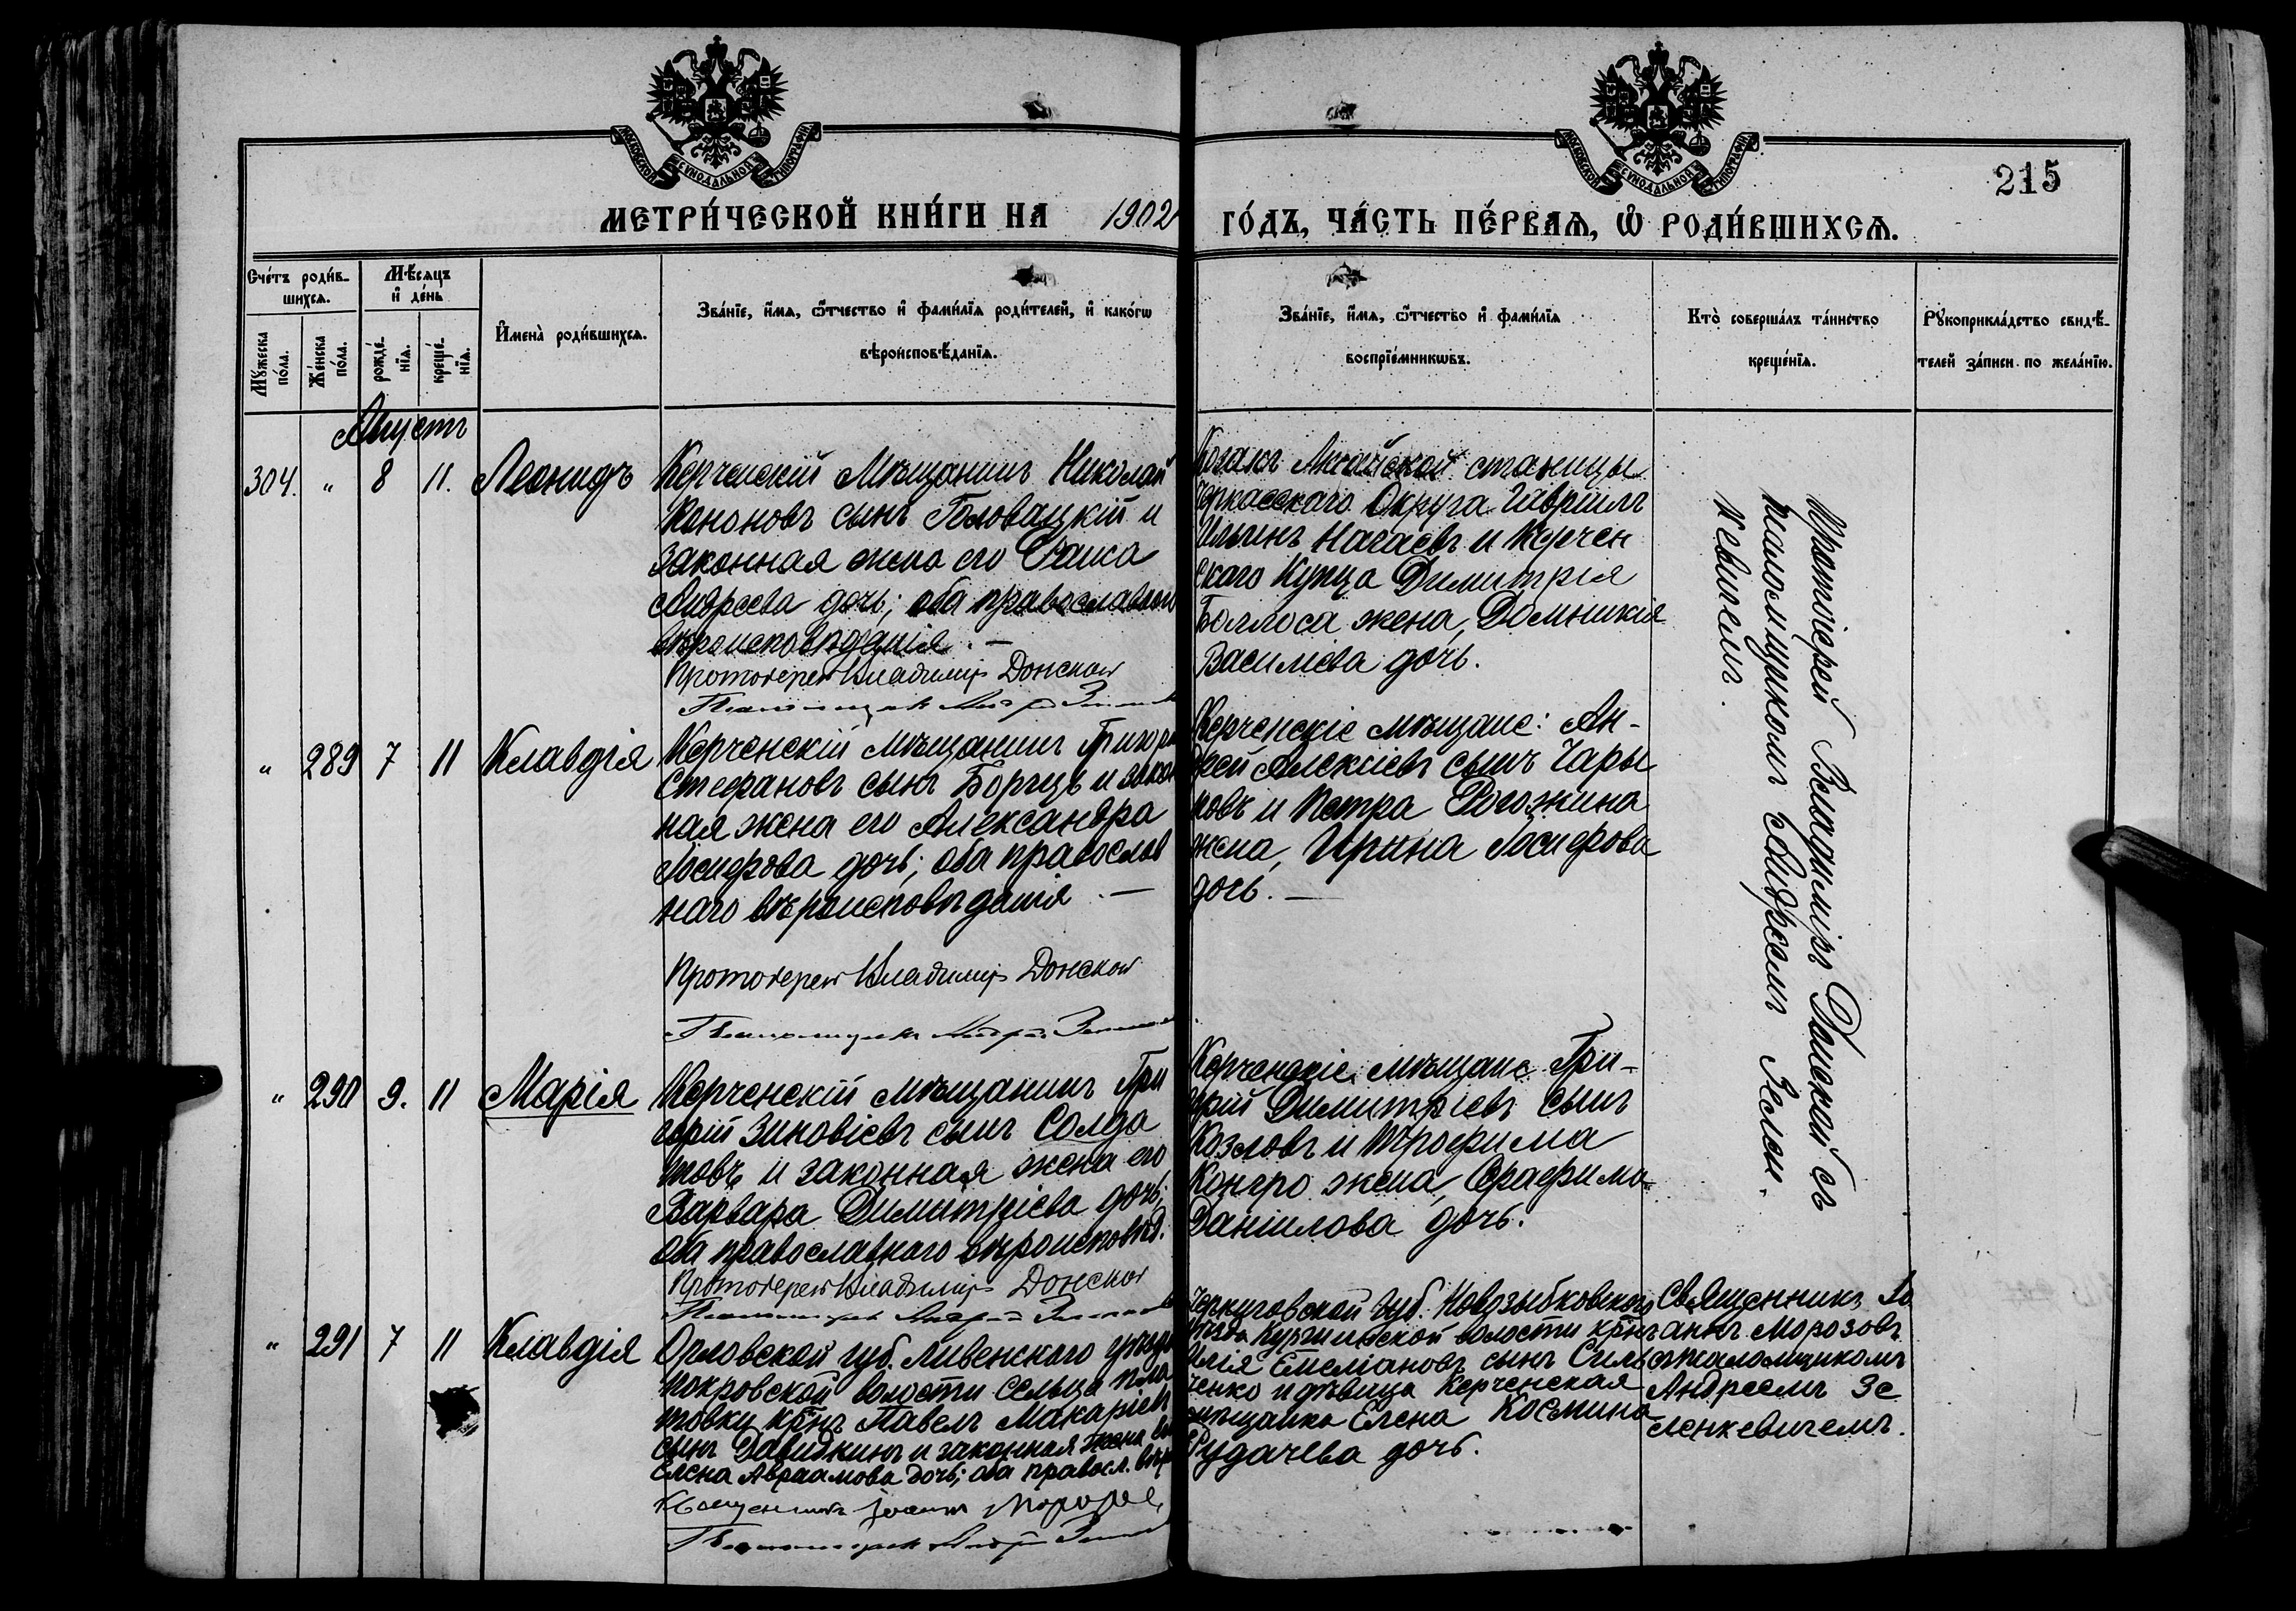 МОСКОВСКОЙ СѴНОДАЛЬНОЙ ТИПОГРАФІИ
МОСКОВСКОЙ СѴНОДАЛЬНОЙ ТИПОГРАФІИ
215
МЕТРИ́ЧЕСКОЙ КНИ́ГИ НА 1902
ГО́ДЪ, ЧА́СТЬ ПЕ́РВАЯ, Ѿ РОДИ́ВШИХСЯ.
Счетъ родив-
шихся.
Мужеска
пола.
Женска
пола.
Мѣсяцъ
и день
рожде-
нія.
креще-
нія.
Имена родившихся.
Званіе, имя, отчество и фамилія родителей, и какого
вѣроисповѣданія.
Званіе, имя, отчество и фамилія
воспріемниковъ.
Кто совершалъ таинство
крещенія.
Рукоприкладство свидѣ-
телей записи по желанію.
Августъ
304. " 8 11. Леонидъ
Керченскій Мѣщанинъ Николай
Кононовъ сынъ Головацкій и
законная жена его Раиса
Андреева дочь; оба православнаго
вѣроисповѣданія. —
Протоіерей Владиміръ Донской
Псаломщикъ Андрей
Козакъ Аксайской станицы
Черкасскаго Округа Гавріилъ
Ильинъ Нагаевъ и Керчен
скаго Купца Димитрія
Боллоса жена, Домникія
Василіева дочь.
Протоіерей Владиміръ Донской съ
псаломщикомъ Андреемъ Зелен
кевичемъ.
" 289 7 11 Клавдія
Керченскій мѣщанинъ Григорій
Стефановъ сынъ Борщъ и закон
ная жена его Александра
Іосифова дочь; оба православ
наго вѣроисповѣданія. —
Протоіерей Владиміръ Донской
Псаломщикъ Андрей
Керченскіе мѣщане: Ан-
дрей Алексіевъ сынъ Чары
ковъ и Петра Рогожина
жена, Ирина Іосифова
дочь. —
" 290 9. 11 Марія
Керченскій мѣщанинъ Гри
горій Зиновіевъ сынъ Солда
товъ и законная жена его
Варвара Димитріева дочь;
оба православнаго вѣроисповѣд.
Протоіерей Владиміръ Донской
Псаломщикъ Андрей
Керченскіе мѣщане Гри-
горій Димитріевъ сынъ
Козловъ и Трофима
жена, Серафима
Даніилова дочь.
" 291 7 11 Клавдія
Орловской губ. Ливенскаго уѣзда
Покровской волости сельца
крнъ Павелъ Макаріевъ
сынъ Давидкинъ и законная жена его
Елена Авраамова дочь; оба правосл. вѣр
Священникъ Іоаннъ Морозовъ
Псаломщикъ Андрей
Черниговской губ. Новозыбковскаго
уѣзда волости крнъ
Илія Емеліановъ сынъ
и дѣвица Керченская
мѣщанка Елена Космина
Рудачева дочь.
Священникъ Іо
аннъ Морозовъ
съ псаломщикомъ
Андреемъ Зе
ленкевичемъ.